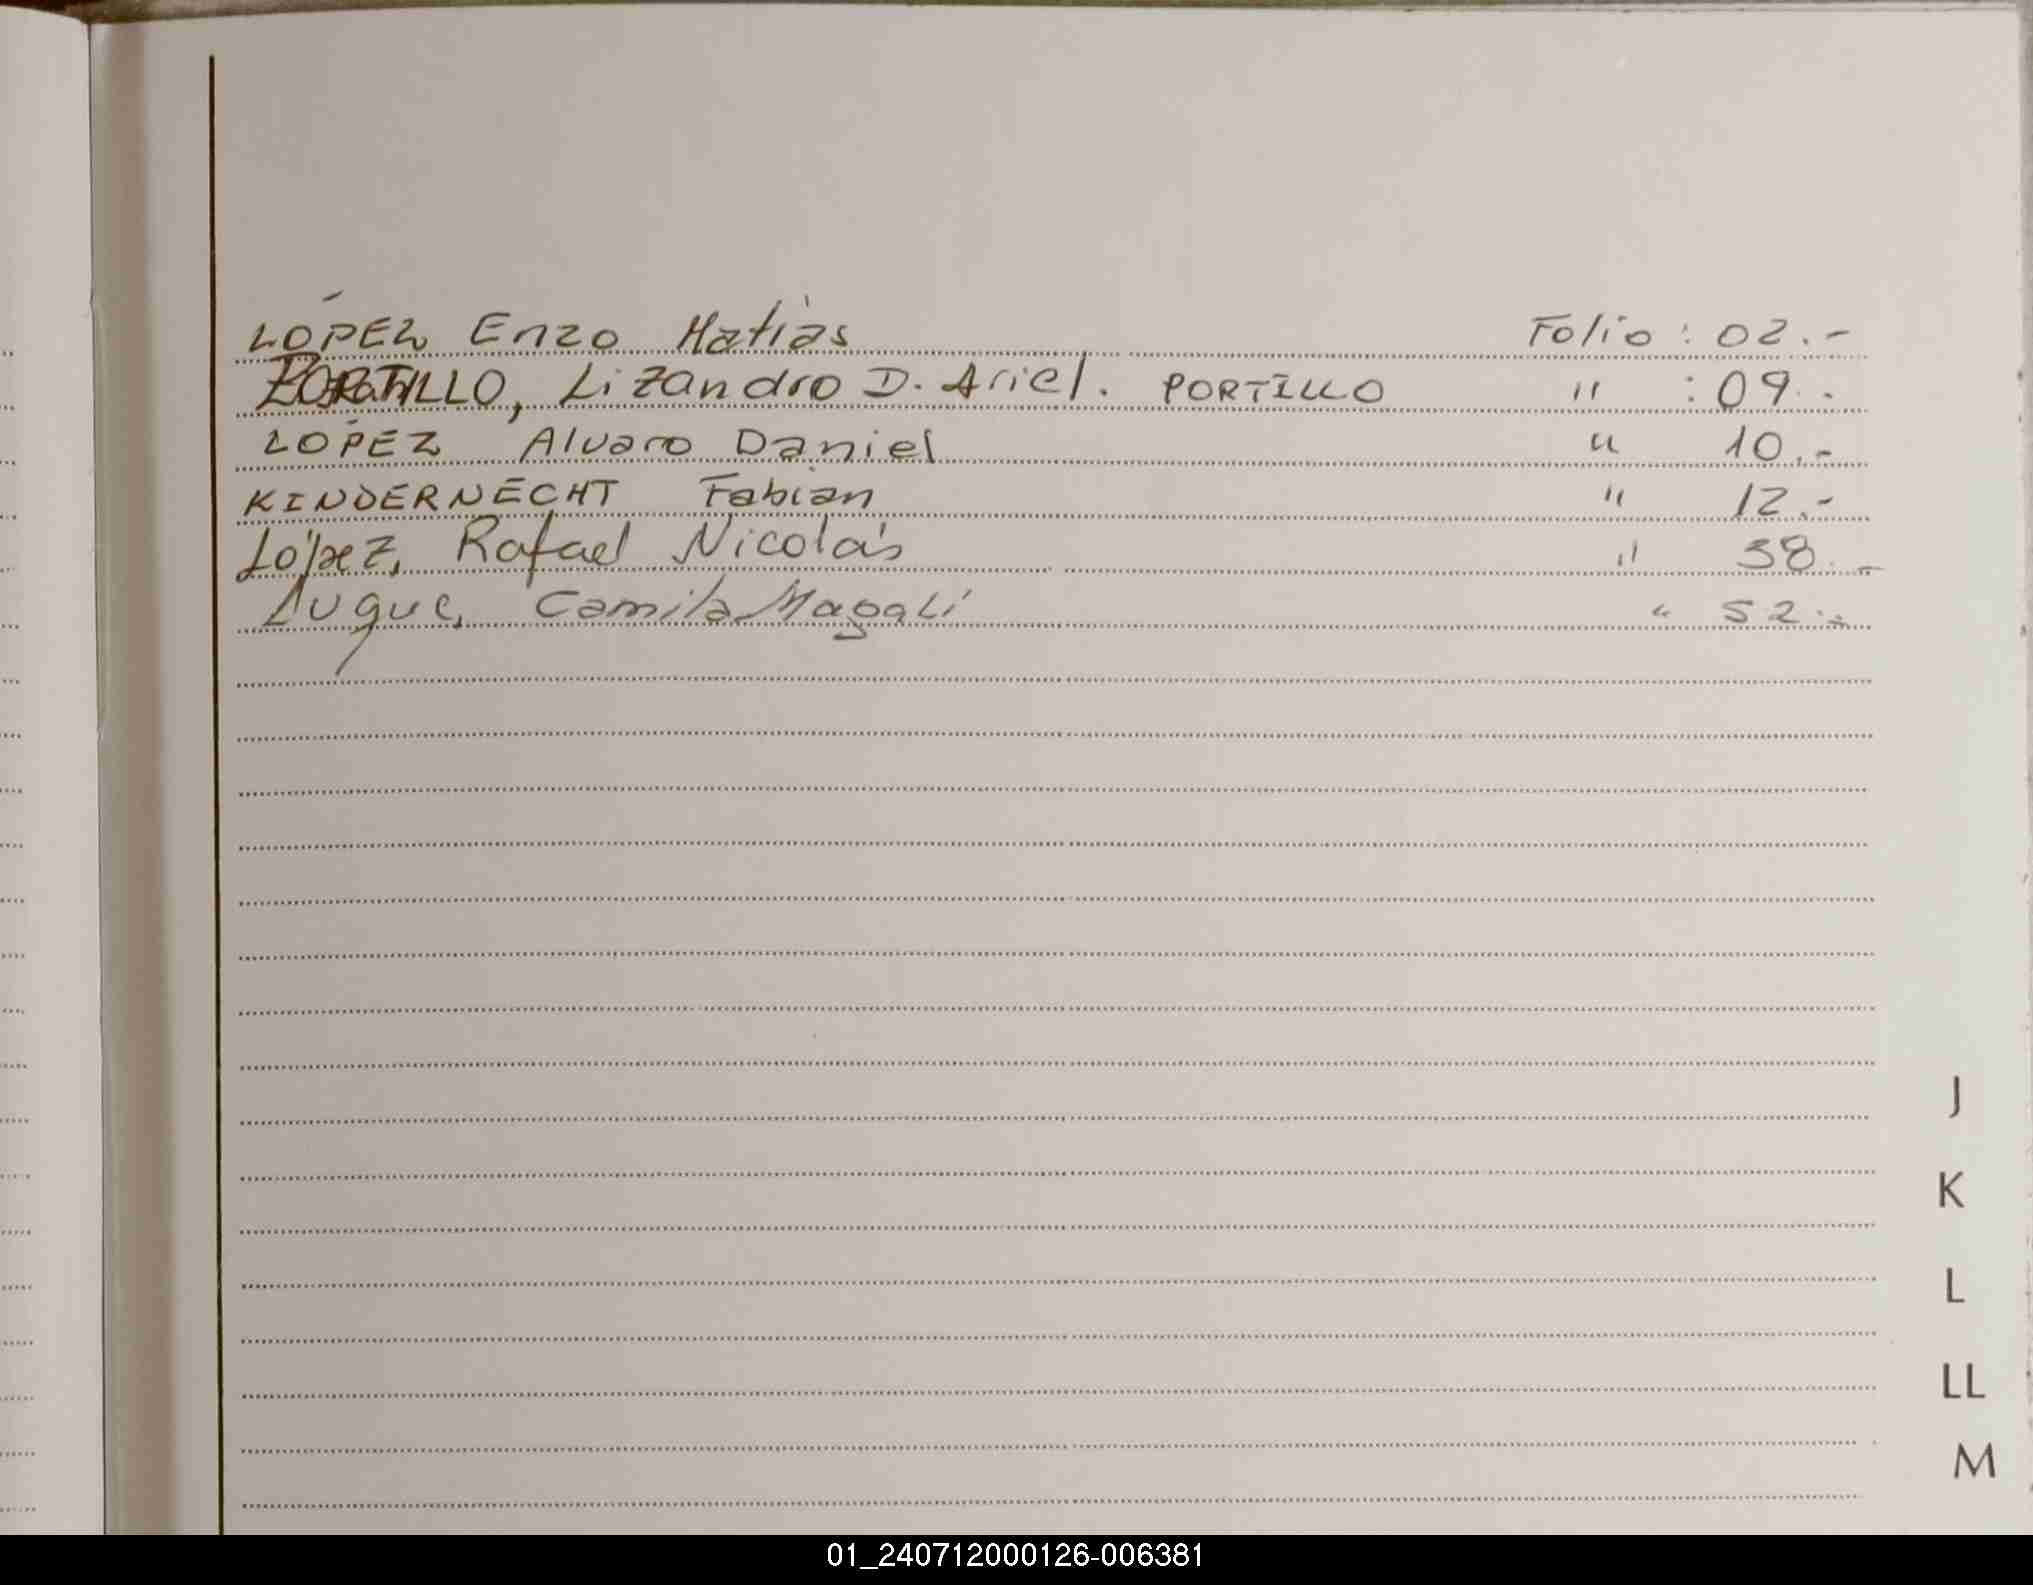 LÓPEZ Enzo Matías Folio : 02.-
PORTILLO, Lizandro D. Ariel. PORTILLO " : 09.-
LÓPEZ Alvaro Daniel " 10.-
KINDERNECHT Fabian " 12.-
López, Rafael Nicolás " 38.-
Luque, Camila Magalí " 52.-
J
K
L
LL
M
01_240712000126-006381